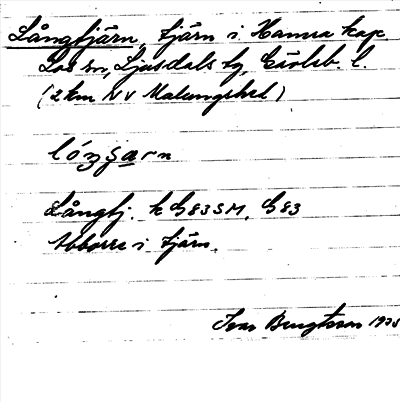 Långtjärn, tjärn i Hamra kap
Los sn, Ljusdals tg, Gävleb. l.
(2 km NV Malungshed)
Långtj. k G83SM, G83
Abborre i tjärn.
Ivar Bengtsson 1935